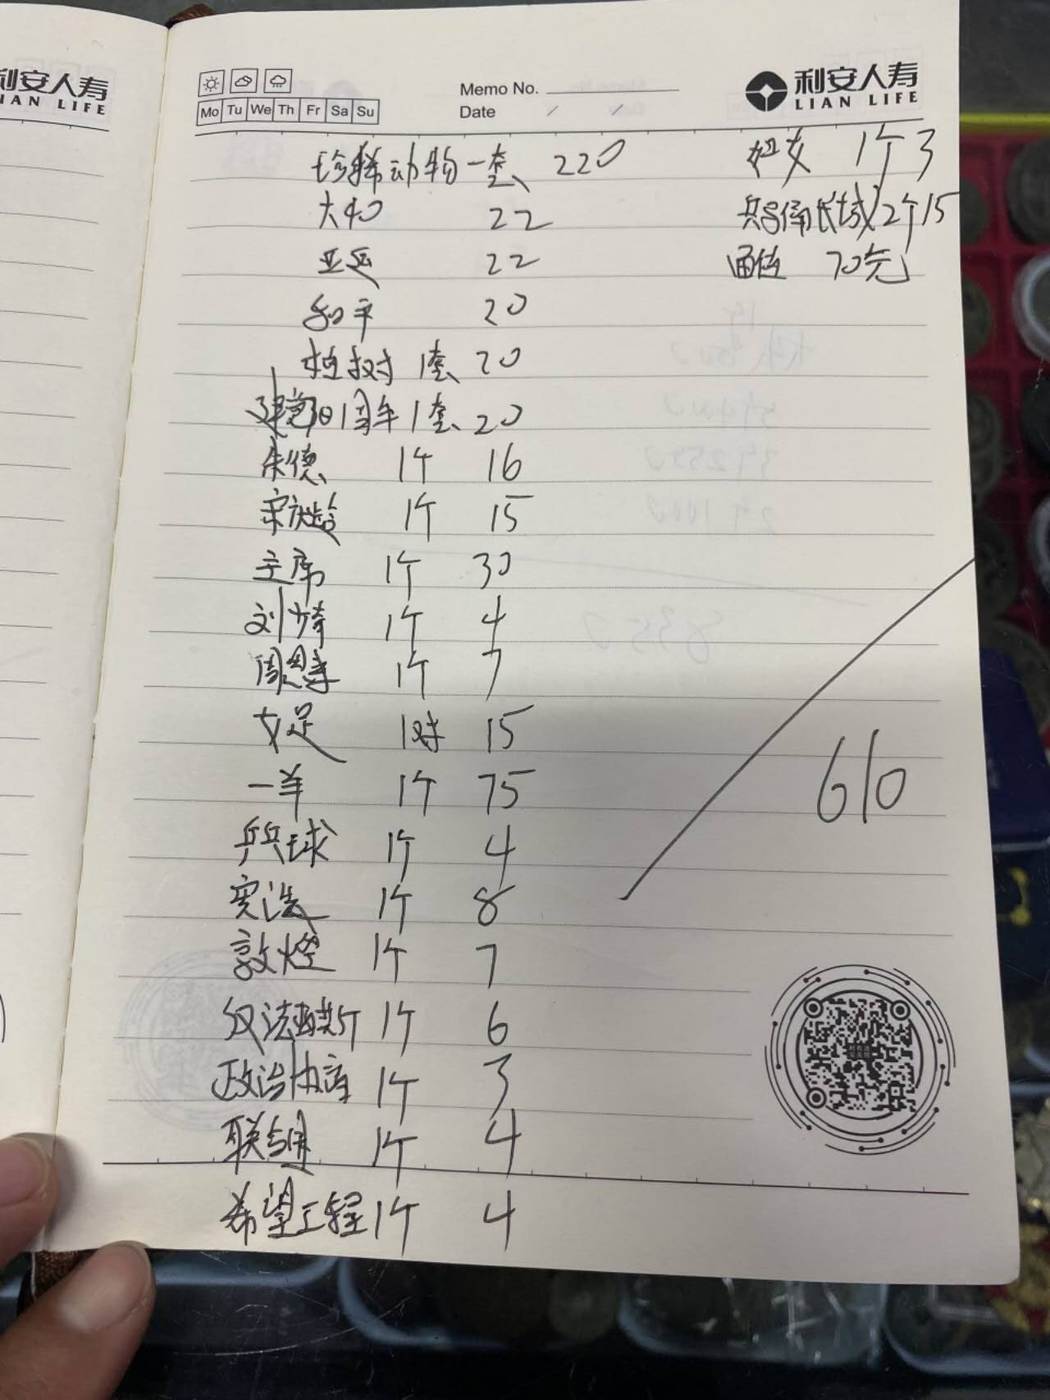 利安人寿
LIAN LIFE
Memo No.
Date / /
利安人寿
LIAN LIFE
Mo Tu We Th Fr Sa Su
珍稀动物一套 220
大40 22
亚运 22
和平 20
植树 1套 20
建党70周年 1套 20
朱德 1个 16
宋庆龄 1个 15
主席 1个 30
刘少奇 1个 4
周恩来 1个 7
女足 1对 15
一羊 1个 75
乒乓球 1个 4
宪法 1个 8
敦煌 1个 7
1个 6
政治协商 1个 3
1个 4
希望工程 1个 4
妇女 1个 3
长城 2个 15
70元
610